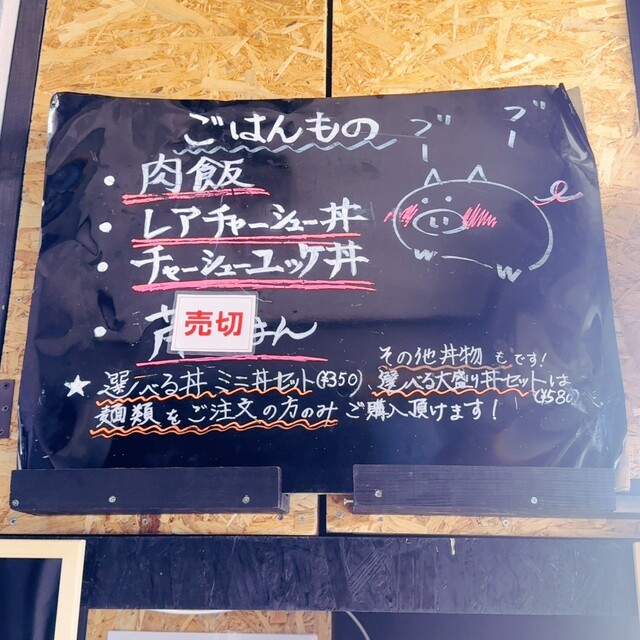 ごはんもの
ブー
ブー
・肉飯
・レアチャーシュー丼
・チャーシューユッケ丼
売切
まん
その他丼物もです!
★選べる丼ミニ丼セット(¥350)、選べる大盛り丼セットは(¥580)
麺類をご注文の方のみご購入頂けます!